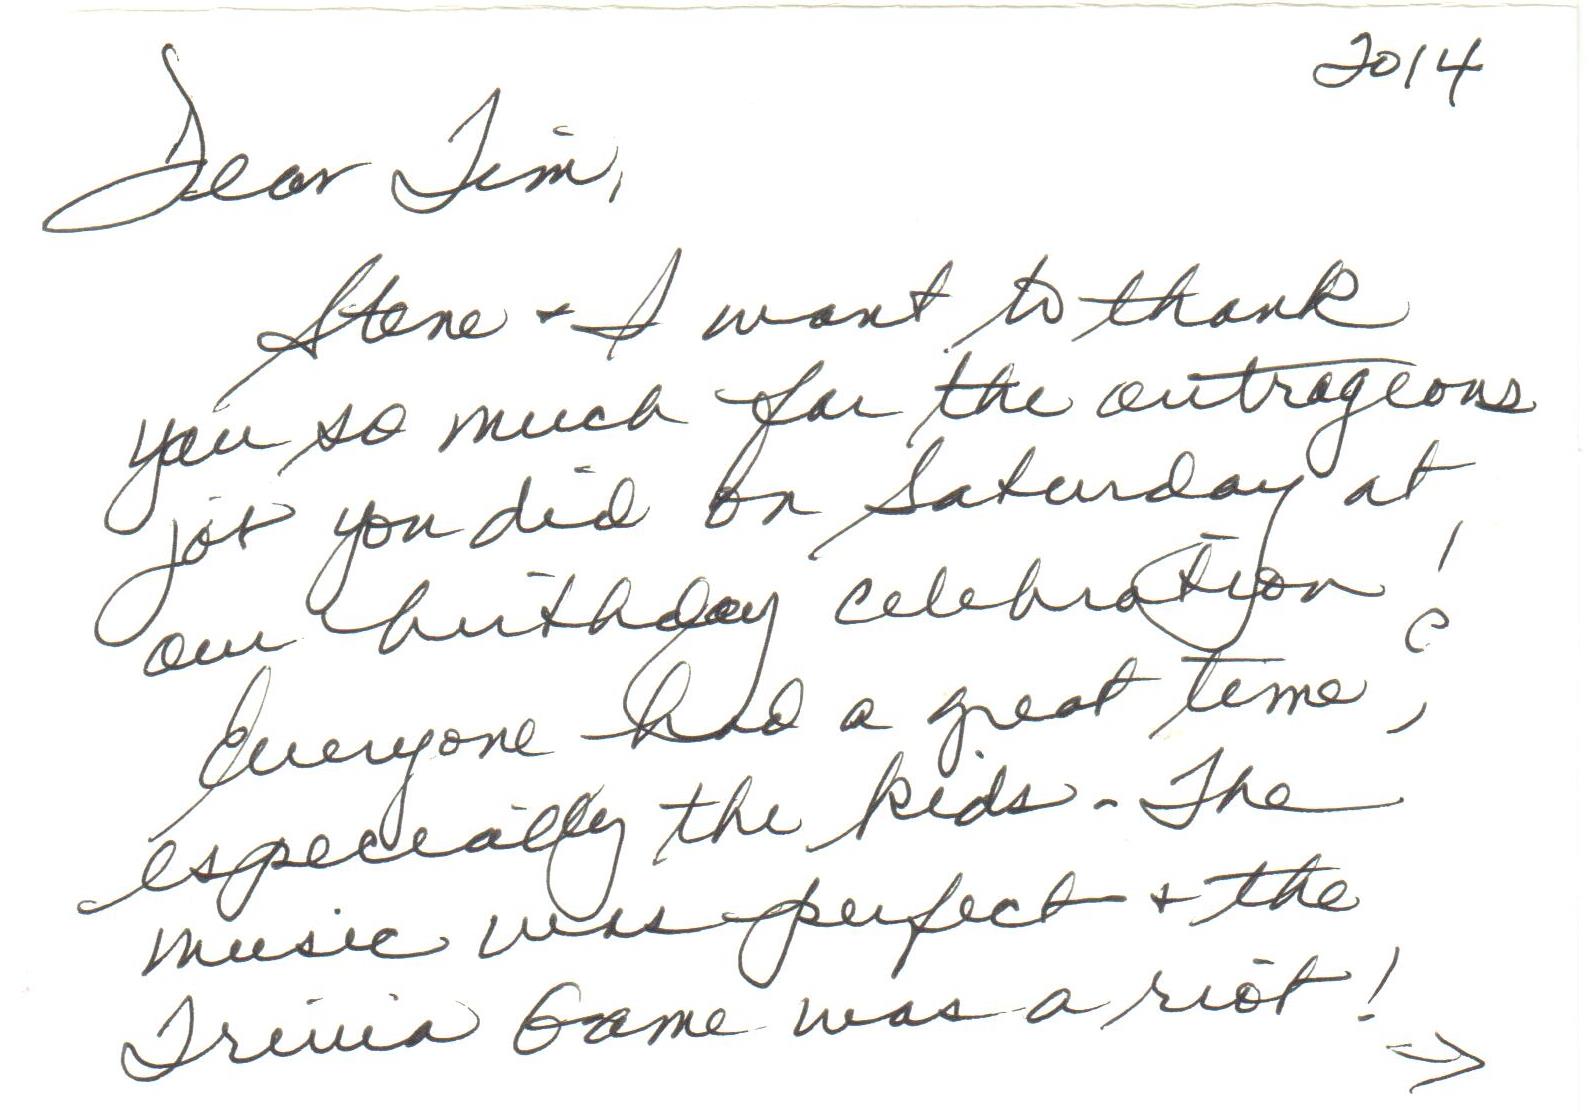 2014
Dear Tim,
Steve + I want to thank
you so much for the outrageous
job you did on Saturday at
our birthday celebration!
Everyone had a great time,
especially the kids. The
music was perfect + the
Trivia Game was a riot!
→